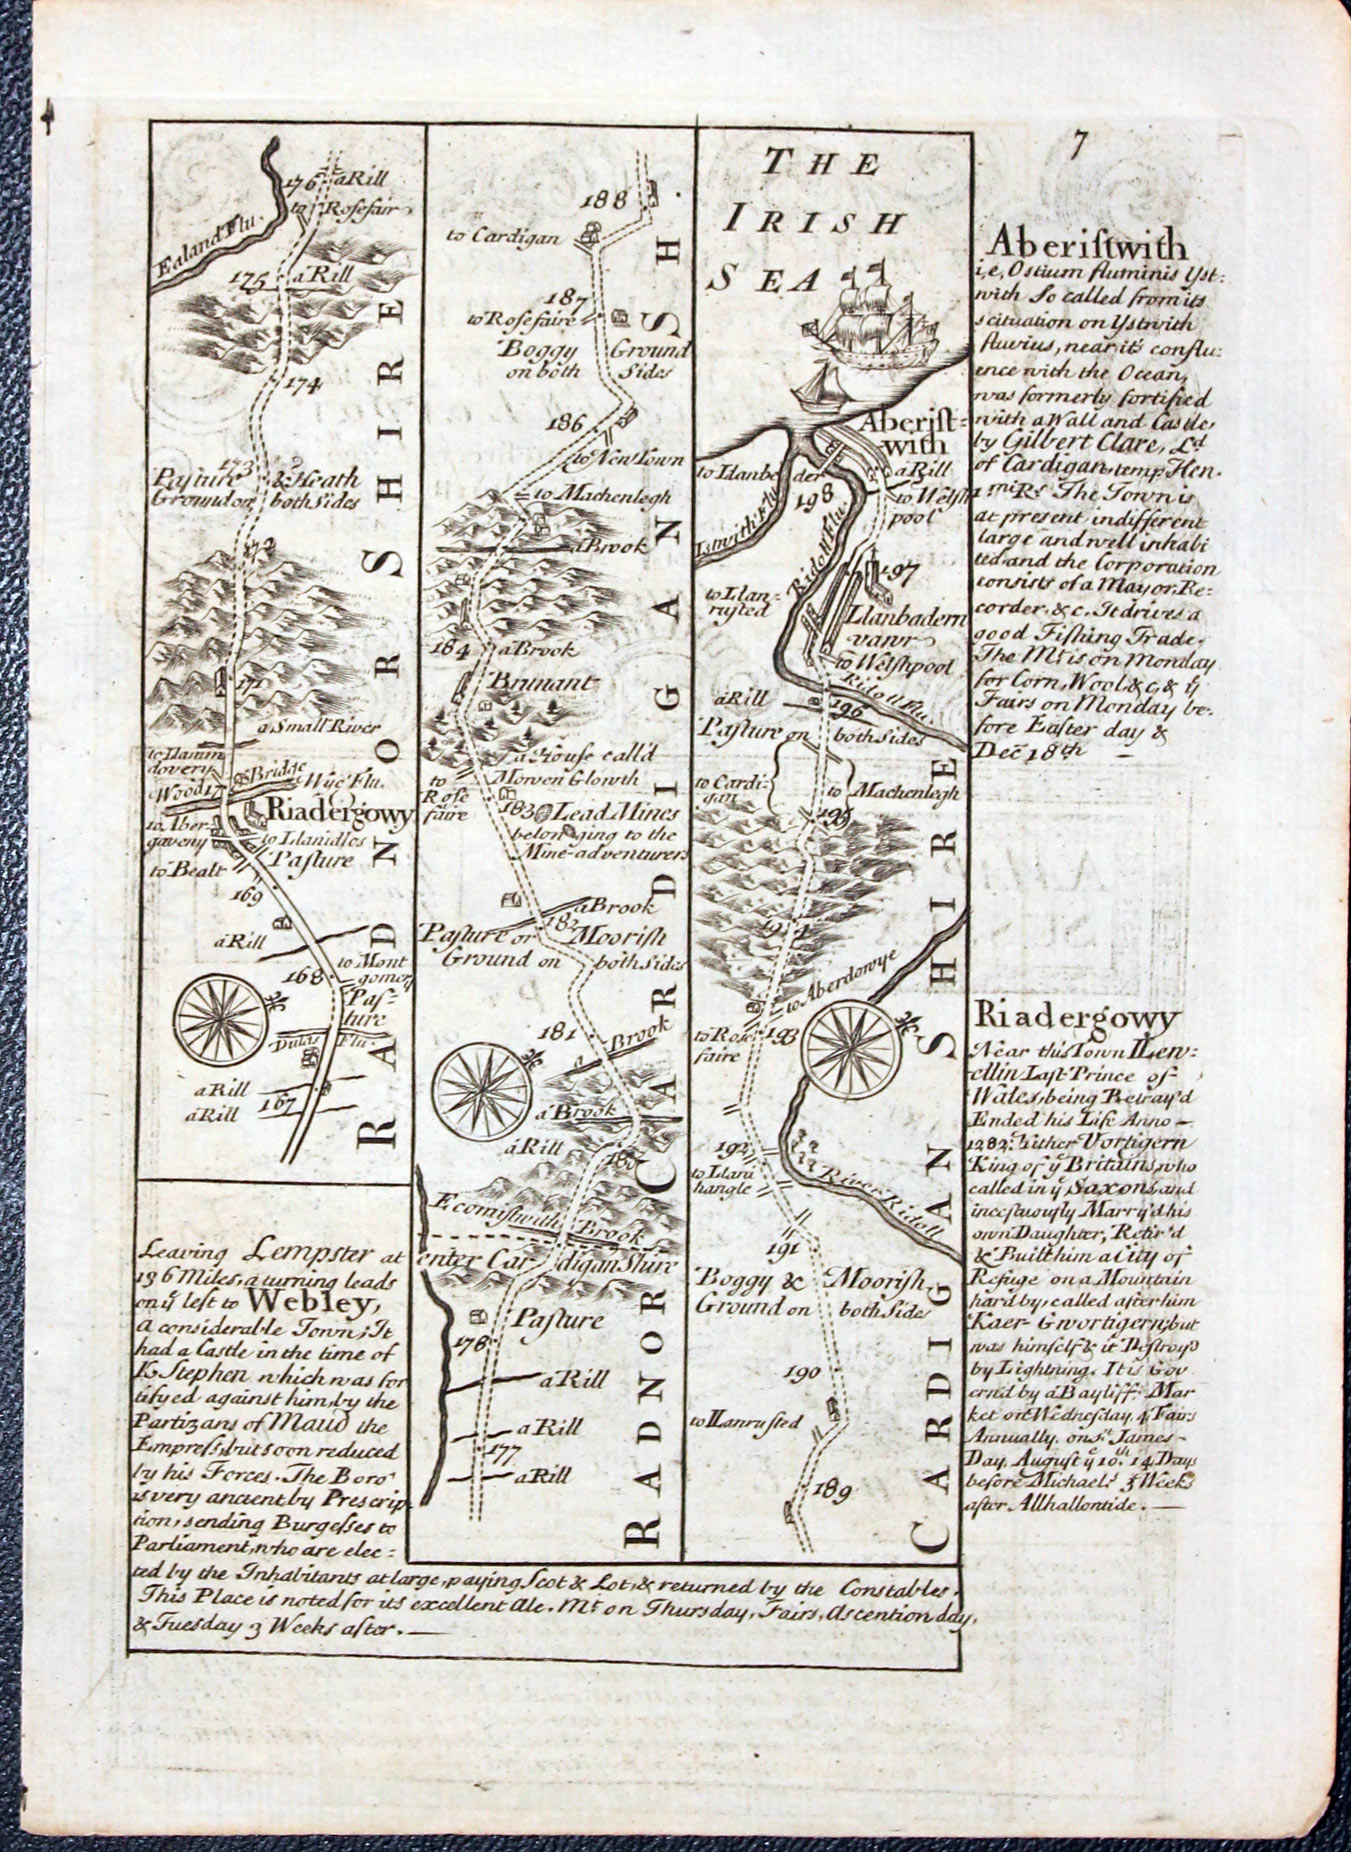 7
176 a Rill
to Rosefair
Ealand Flu.
175 a Rill
174
173
Pasture & Heath
Ground on both Sides
172
171
a Small River
to Llanim
dovery
Bridge
Wye Flu.
Wood 17
Riadergowy
to Aber-
gaveny
to Llanidlos
Pasture
to Bealt
169
a Rill
168
to Mont
gomery
Pas-
ture
Dulas Flu.
a Rill
167
a Rill
RADNORSHIRE
188
to Cardigan
187
to Rosefaire
Boggy Ground
on both Sides
186
to New Town
to Machenlegh
a Brook
184 a Brook
Brunant
a House call'd
Morven Glowth
to
Rose
faire
183 Lead Mines
belonging to the
Mine-adventurers
a Brook
182
Pasture or Moorish
Ground on both Sides
181
a Brook
a Brook
a Rill
180
Ecomistwith Brook
enter Cardigan Shire
Pasture
178
a Rill
a Rill
177
a Rill
RADNOR CARDIGANSH.
THE
IRISH
SEA
Aberist-
with
to Llanbe
der
a Rill
198
to Welsh
pool
Istwith Flu.
Ridoll Flu.
197
to Llan-
rusted
Llanbadern
vawr
to Welshpool
Ridoll Flu.
a Rill
196
Pasture on both Sides
to Cardi-
gan
to Machenlegh
195
194
to Aberdowye
to Rose
faire
193
192
to Llani
hangle
River Ridoll
191
Boggy & Moorish
Ground on both Sides
190
to Llanrusted
189
CARDIGANSHIRE
Aberistwith
i,e, Ostium fluminis Yst-
with So called from its
scituation on Ystwith
fluvius, near it's conflu-
ence with the Ocean,
was formerly fortified
with a Wall and Castle,
by Gilbert Clare, Ld.
of Cardigan temp Hen.
1mi Rs. The Town is
at present indifferent
large and well inhabi
ted and the Corporation
consists of a Mayor, Re-
corder, &c. It drives a
good Fishing Trade.
The Mt. is on Monday
for Corn, Wool, &c, & ye
Fairs on Monday be-
fore Easter day &
Decr 18th —
Riadergowy
Near this Town Llew-
ellin Last Prince of
Wales, being Betray'd
Ended his Life Anno —
1282. hither Vortigern
King of ye Britains, who
called in ye Saxons, and
incestuously Marry'd his
own Daughter, Retir'd
& Built him a City of
Refuge on a Mountain
hard by, called after him
Kaer-Gwortigern, but
was himself & it Destroy'd
by Lightning. It is Gov
ern'd by a Bayliff. Mar
ket on Wednesday, 4 Fairs
Annually. on St. James-
Day. August ye 10th. 14 Days
before Michaels. 3 Weeks
after Allhallontide. —
Leaving Lempster at
136 Miles, a turning leads
on ye left to Webley,
a considerable Town; It
had a Castle in the time of
K. Stephen which was for
tifyed against him, by the
Partizans of Maud the
Empress, but soon reduced
by his Forces. The Boro'
is very ancient by Prescrip
tion, sending Burgesses to
Parliament, who are elec-
ted by the Inhabitants at large, paying Scot & Lot, & returned by the Constables.
This Place is noted for its excellent Ale. Mt. on Thursday, Fairs, Ascention day,
& Tuesday 3 Weeks after. —